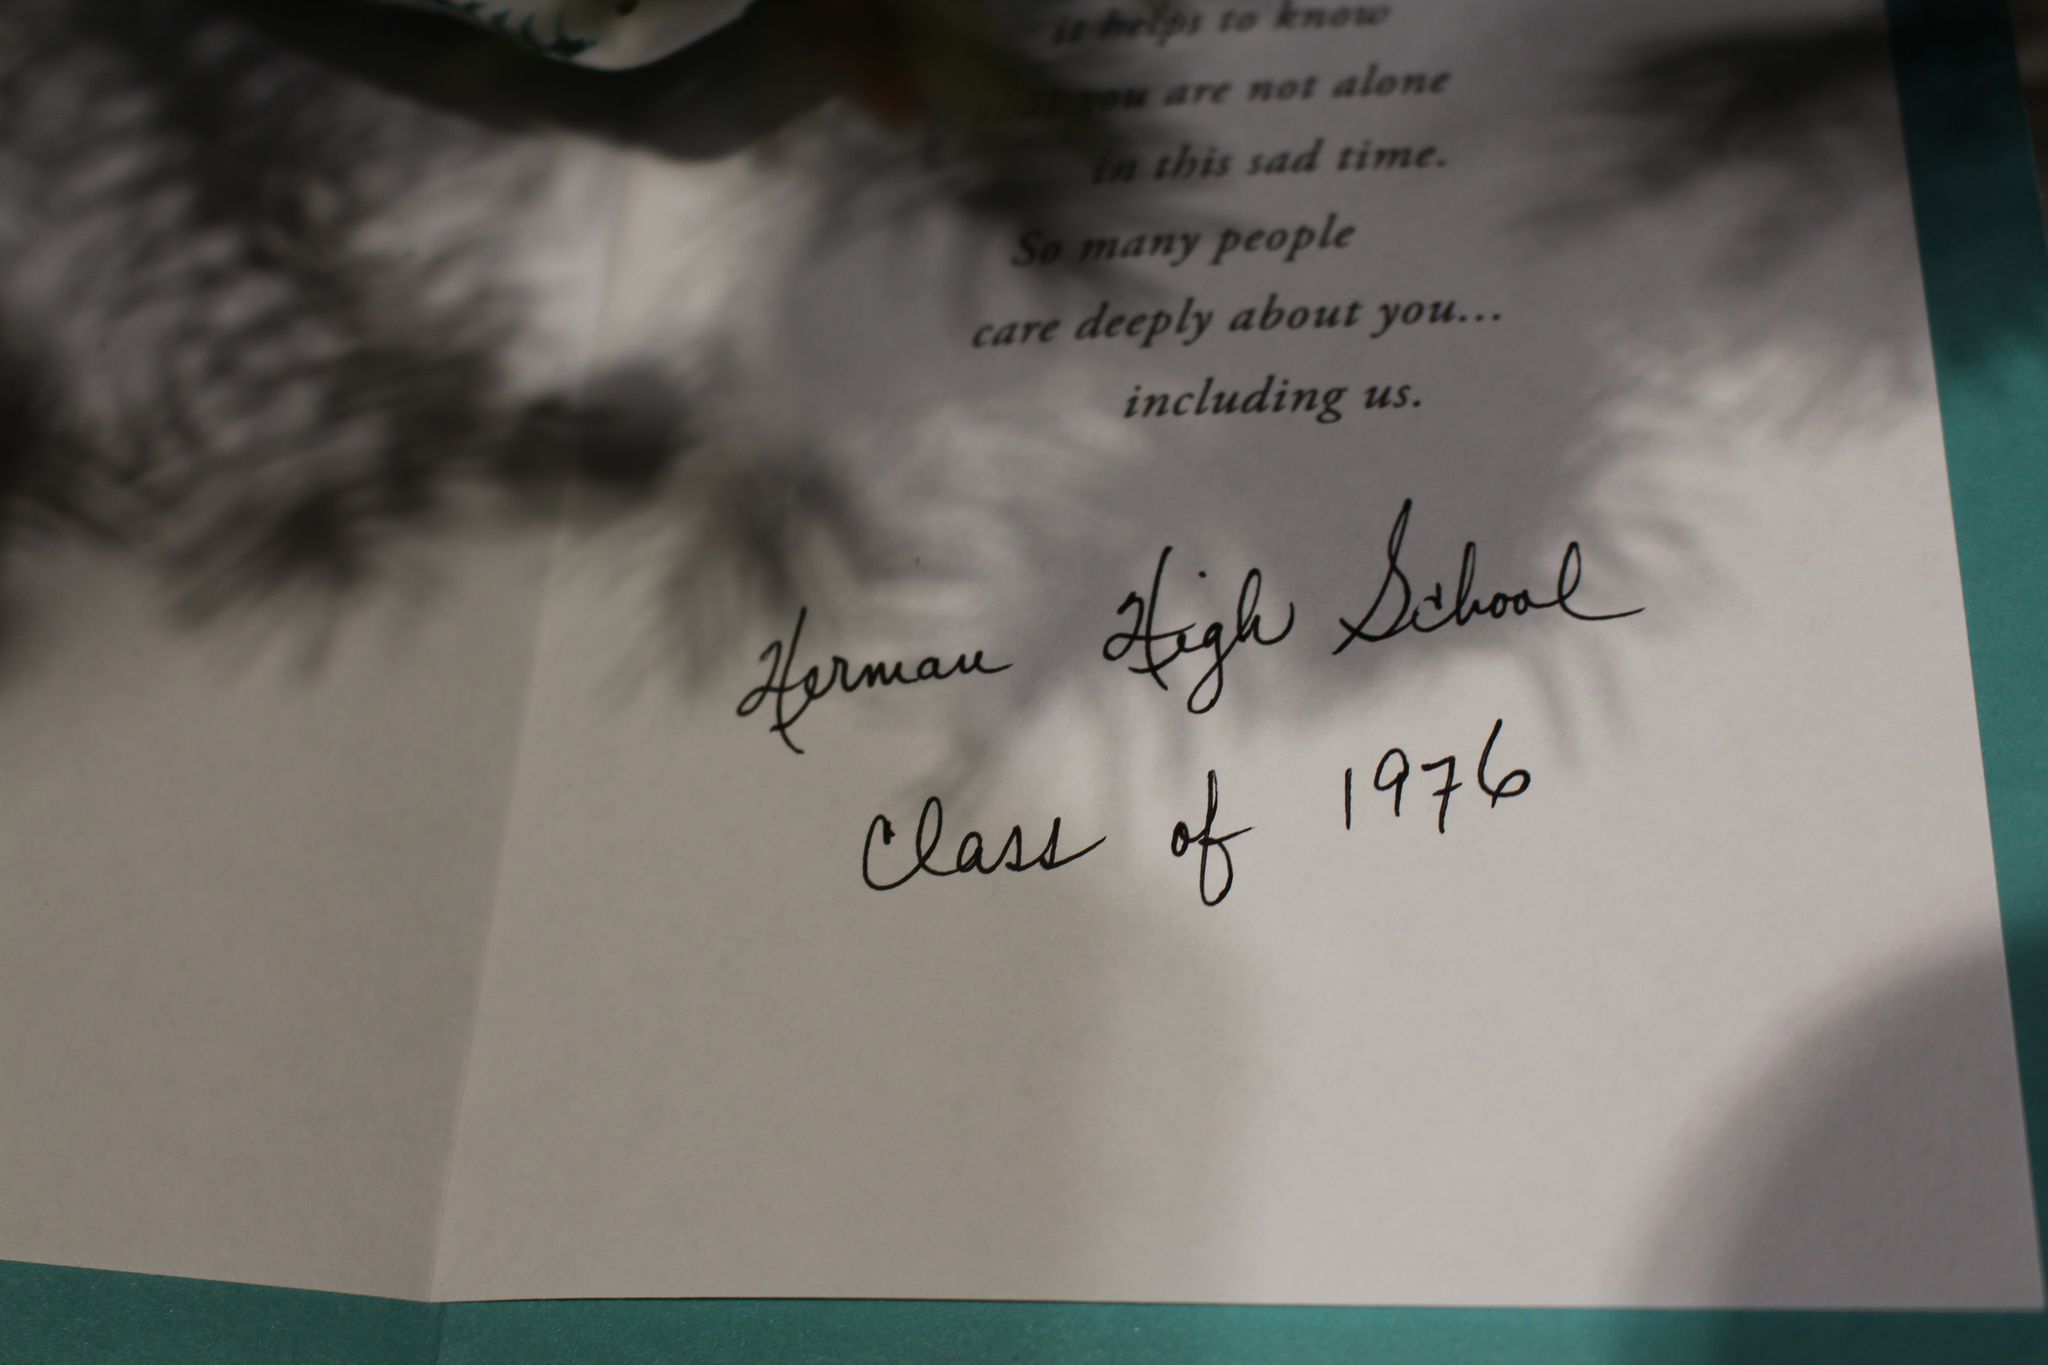 it helps to know
that you are not alone
in this sad time.
So many people
care deeply about you...
including us.
Herman High School
Class of 1976